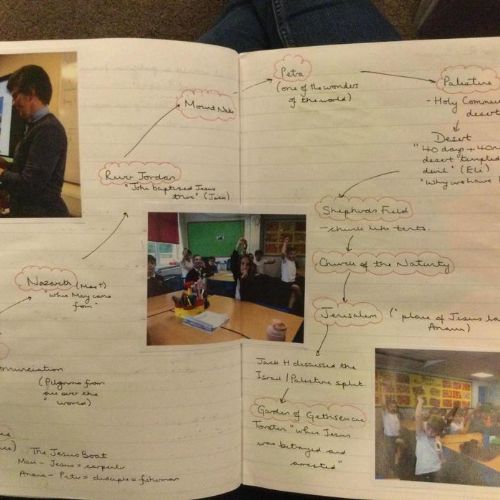 Mount Nebo
River Jordan
"John baptised Jesus
there" (Jack)
Nazareth (Matt)
where Mary came
from"
(Pilgrims from
all over the
world)
The Jesus Boat
Jesus = carpenter
Peter = disciple = fisherman
Petra
(one of the wonders
of the world)
Palestine
- Holy
desert
Desert
"40 days + 40
desert
devil" (Eli)
"Why we have
Shepherds Field
- church like tents.
Church of the Nativity
Jerusalem ("place of Jesus
Jack H discussed the
Israel / Palestine split.
Garden of Gethsemane
"where Jesus
was betrayed and
arrested"